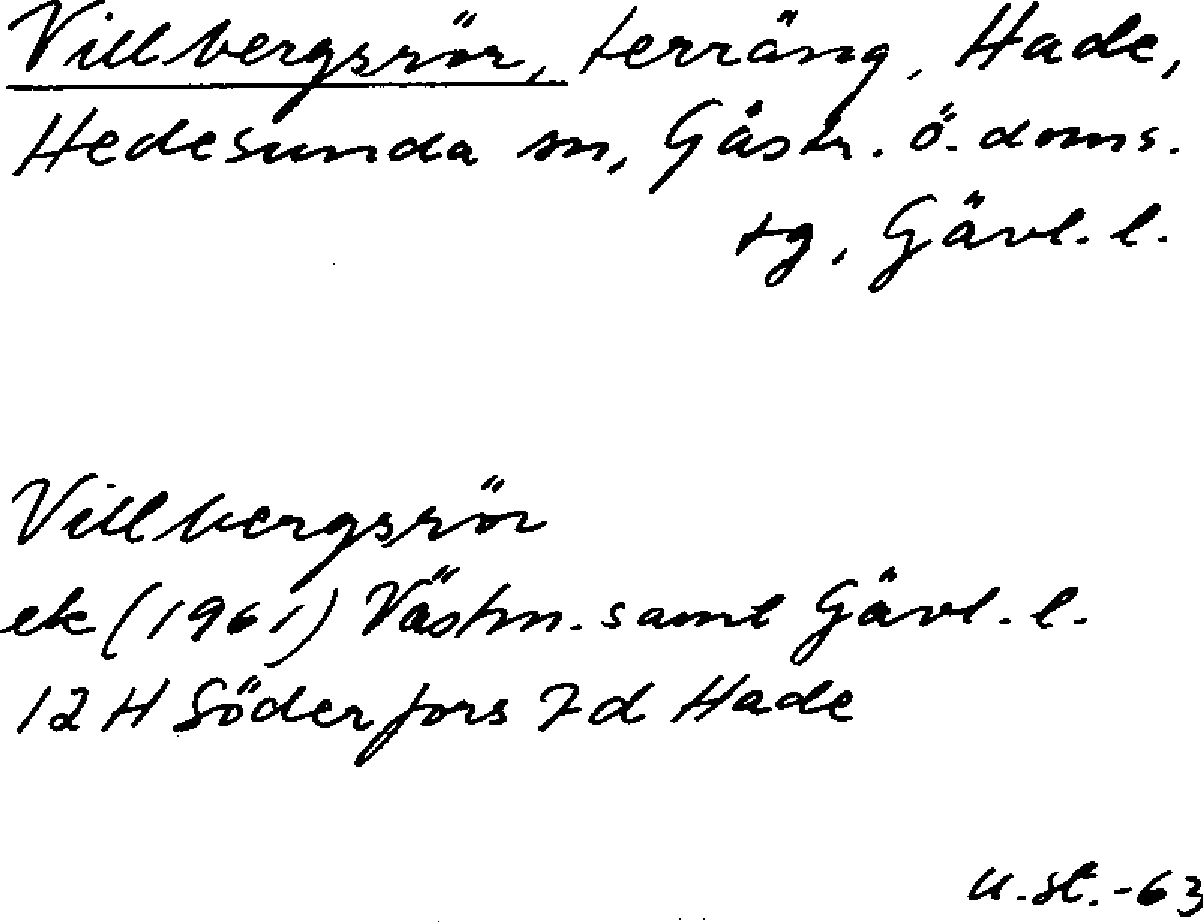 Villbergsrör, terräng, Hade,
Hedesunda sn, Gästr. ö. doms.
tg, Gävl. l.
Villbergsrör
ek (1961) Västm. samt Gävl. l.
12 H Söderfors 7 d Hade
u.st. -63